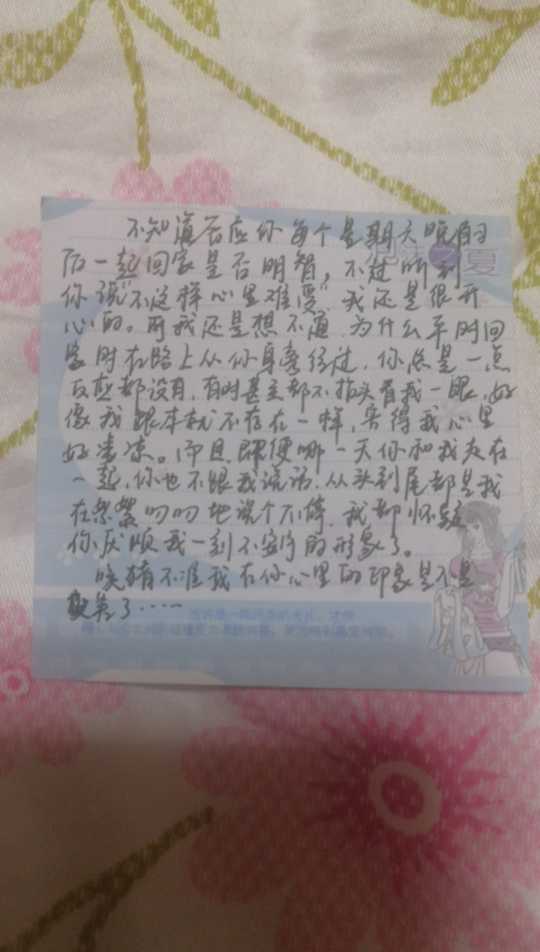 不知道答应你每个星期天晚自习
后一起回家是否明智，不过听到
你说“不这样心里难受”我还是很开
心的。可我还是想不通，为什么平时回
家时在路上从你身旁经过，你总是一点
反应都没有，有时甚至都不抬头看我一眼，好
像我跟本就不存在一样，害得我心里
好凄凉。而且即便哪一天你和我走在
一起，你也不跟我说话，从头到尾都是我
在絮絮叨叨地说个不停，我都怀疑
你厌烦我一刻不安宁的形象了。
唉，猜不准我在你心里的印象是不是
变差了……
之夏